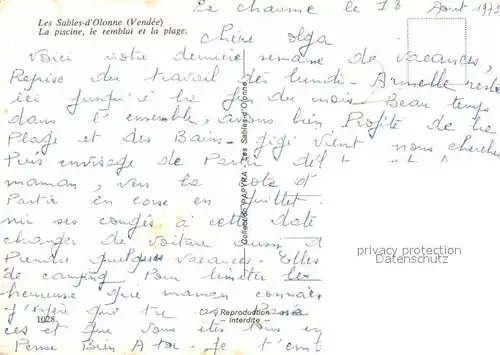 La chaume le 18 Aout 1971
Les Sables-d'Olonne (Vendée)
La piscine, le remblai et la plage.
Chère Olga
Voici notre dernière semaine de vacances,
Reprise du travail dès lundi - Armelle reste
ici jusqu'à la fin du mois - Beau temps
dans l'ensemble, avons bien Profité de la
Plage et des Bains - gigi vient nous chercher
Plus envisage de Partir
maman, vers la cote d
Partir en en juillet
ses congés à cette date
changer de voiture aussi
Prendre quelques vacances. Elles
de camping Pour limiter les
heureuse que maman connais
j'espère que tu as
ces et que vous êtes tous en
Pense Bien A toi. Je t'em
Collection PAPYRA Les Sables-d'Olonne
1028
Reproduction
-- interdite --
privacy protection
Datenschutz